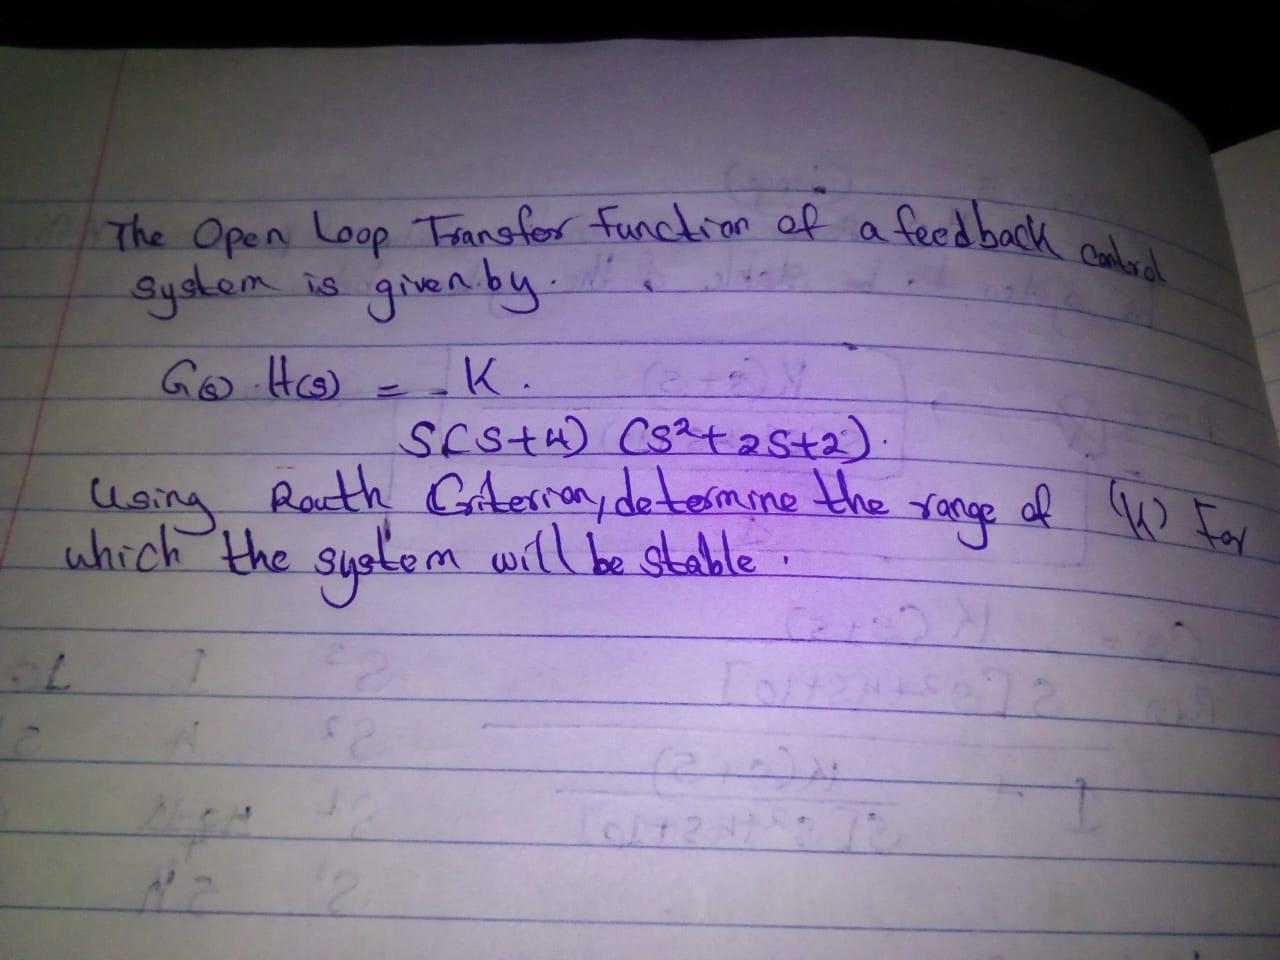 The Open Loop Transfer Function of a feedback control
system is given by.
G(s) . H(s) = K .
S(S+4) (S²+2S+2).
Using Routh Criterion, determine the range of (K) For
which the system will be stable .